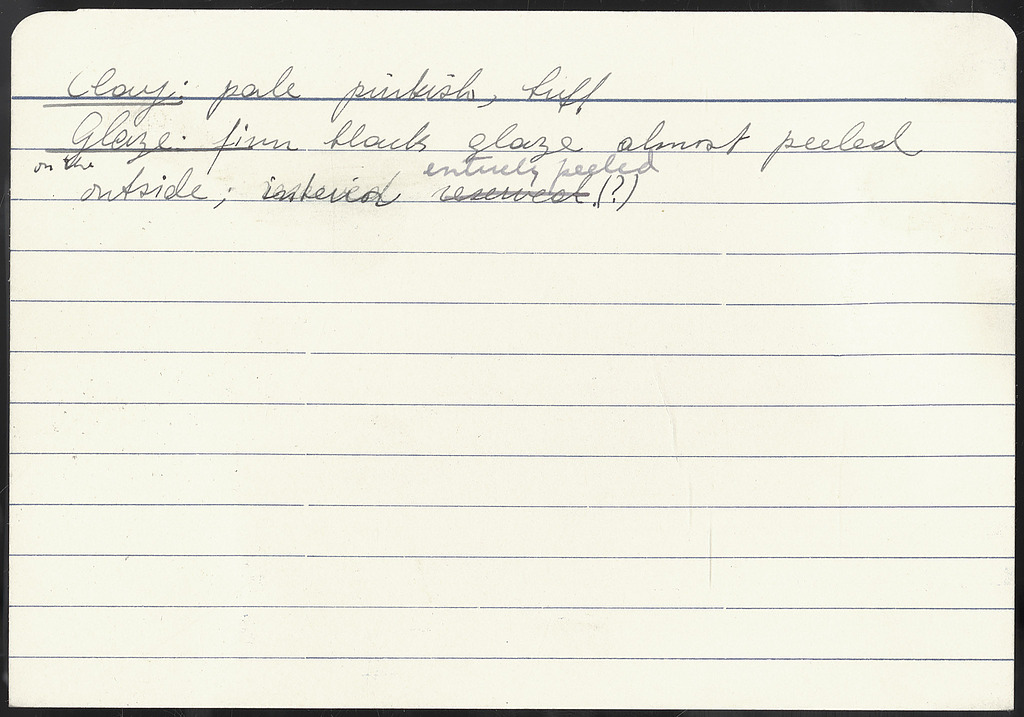 Clay: pale pinkish, buff
Glaze: firm black glaze almost peeled
on the outside; interior entirely peeled reserved (?)